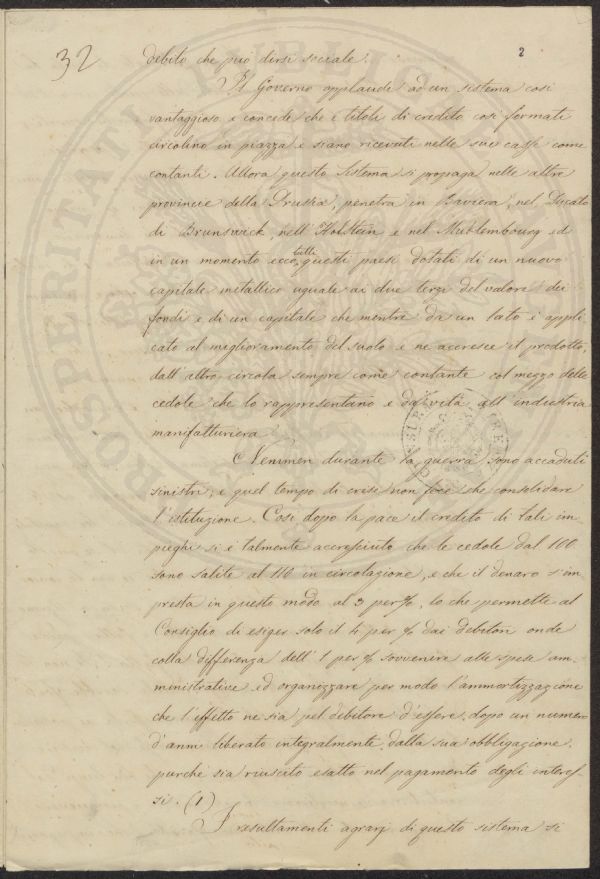 32
2
debito che può dirsi sociale.
Il Governo applaudì ad un sistema così
vantaggioso e concede che i titoli di credito così formati
circolino in piazza e siano ricevuti nelle sue casse come
contanti. Allora questo Sistema si propaga nelle altre
provincie della Prussia, penetra in Baviera, nel Ducato
di Brunswick, nell'Holstein e nel Muhlembourg ed
in un momento ecco tutti questi paesi dotati di un nuovo
capitale metallico uguale ai due terzi del valore dei
fondi e di un capitale che mentre da un lato è appli
cato al miglioramento del suolo e ne accresce il prodotto,
dall'altro circola sempre come contante col mezzo delle
cedole che lo rappresentano e dà vita all'industria
manifatturiera.
Nemmen durante la guerra sono accaduti
sinistri, e quel tempo di crise non fece che consolidare
l'istituzione. Così dopo la pace il credito di tali im
pieghi si è talmente accresciuto che le cedole dal 100
sono salite al 110 in circolazione, e che il denaro s'im
presta in questo modo al 3 per %, lo che permette al
Consiglio di esiger solo il 4 per % dai debitori onde
colla differenza dell'1 per % sovvenire alle spese am
ministrative ed organizzare per modo l'ammortizzazione
che l'effetto ne sia pel debitore d'essere, dopo un numero
d'anni liberato integralmente dalla sua obbligazione,
purchè sia riuscito esatto nel pagamento degli interes
si. (1)
I resultamenti agrarj di questo sistema si
PROSPERITATI PUBLIC